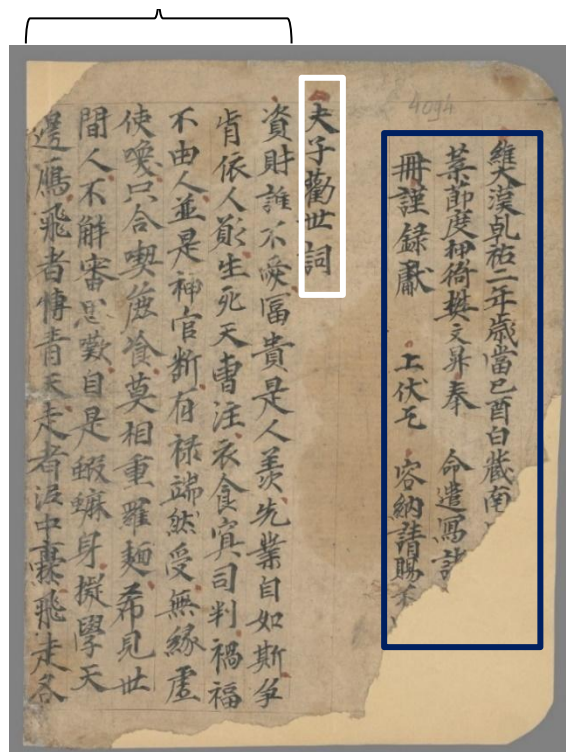 4094
維大漢乾祐二年歲當己酉白藏南
菜節度押衙樊文昇奉 命遣寫詩
冊謹録獻 上伏乞 容納請賜
夫子勸世詞
資財誰不愛冨貴是人羨先業自如斯爭
肯依人願生死天曹注衣食冥司判禍福
不由人並是神官斷有禄端然受無緣虛
使喚只合喫麁飡莫相重羅麵希見世
間人不解審思歎自是蝦蟆身擬學天
邊鴈飛者愽青天走者泥中飛走各